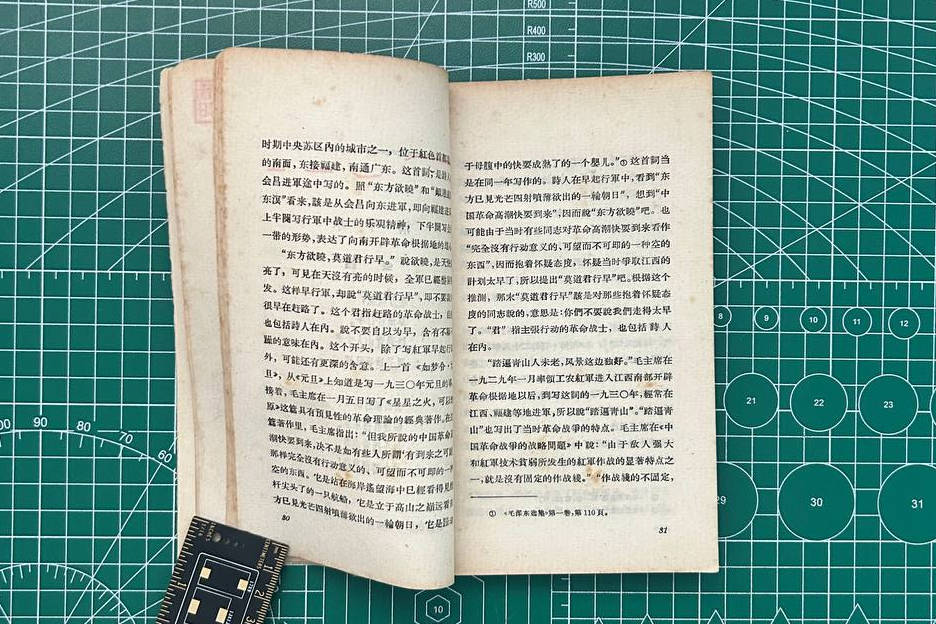 时期中央苏区内的城市之一，位于紅色首都
的南面，东接福建，南通广东。这首詞，是
会昌进軍途中写的。照“东方欲曉”和“
东溟”看来，該是从会昌向东进軍，即向福建
上半闋写行軍中战士的乐观精神，下半闋写
一带的形势，表达了向南开辟革命根据地的
“东方欲曉，莫道君行早。”說欲曉，是天
亮了，可見在天沒有亮的时候，全軍已經
发。这样早行軍，却說“莫道君行早”，即不要
很早在赶路了。这个君指赶路的革命战士，
也包括詩人在內。說不要自以为早，含有不
蹋的意味在內。这个开头，除了写紅軍早起
外，可能还有更深的含意。上一首《如梦令·
旦》，从《元旦》上知道是写一九三〇年元旦的
接着，毛主席在一月五日写了《星星之火，可以
原》这篇具有预見性的革命理論的經典著作。在
篇著作里，毛主席指出：“但我所說的中国革命
潮快要到来，决不是如有些人所謂‘有到来之可能
那样完全沒有行动意义的、可望而不可即的一
空的东西。它是站在海岸遙望海中已經看得見
杆尖头了的一只航船，它是立于高山之巔远看
方已見光芒四射噴薄欲出的一輪朝日，它是
30
于母腹中的快要成熟了的一个嬰儿。”①这首詞当
是在同一年写作的。詩人在早起行軍中，看到“东
方已見光芒四射噴薄欲出的一輪朝日”，想到“中
国革命高潮快要到来”，因而說“东方欲曉”吧。也
可能由于当时有些同志对革命高潮快要到来看作
“完全沒有行动意义的、可望而不可即的一种空的
东西”，因而抱着怀疑态度，怀疑当时爭取江西的
計划太早了，所以提出“莫道君行早”吧。根据这个
推測，那末“莫道君行早”該是对那些抱着怀疑态
度的同志說的，意思是：你們不要說我們走得太早
了。“君”指主張行动的革命战士，也包括詩人
在內。
“踏遍青山人未老，风景这边独好。”毛主席在
一九二九年一月率領工农紅軍进入江西南部开辟
革命根据地以后，到写这詞的一九三〇年，經常在
江西、福建等地进軍，所以說“踏遍青山”。“踏遍青
山”也写出了当时革命战爭的特点。毛主席在《中
国革命战爭的战略問題》中說：“由于敌人强大
和紅軍技术貧弱所发生的紅軍作战的显著特点之
一，就是沒有固定的作战綫。”“作战綫的不固定，
① 《毛泽东选集》第一卷，第110頁。
31
R500
R400
R300
8
9
10
11
12
21
22
23
29
30
31
10
90
80
70
60